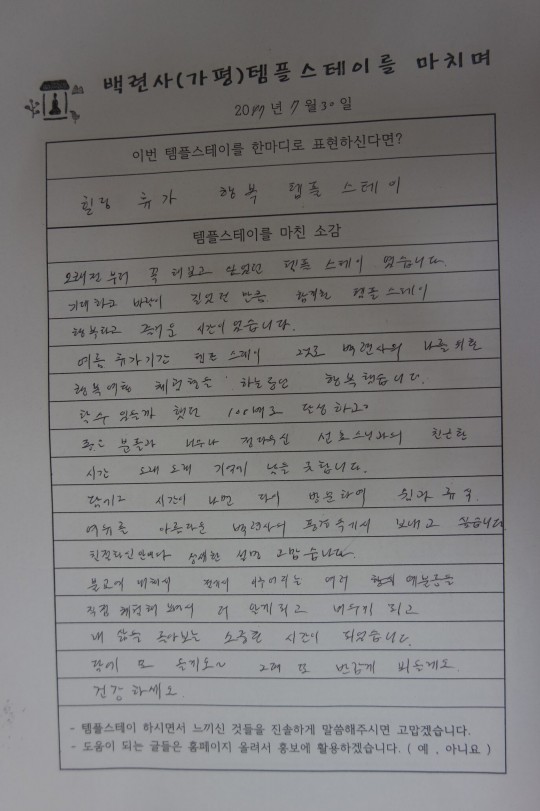 백련사(가평)템플스테이를 마치며
2017년 7월 30일
이번 템플스테이를 한마디로 표현하신다면?
힐링 휴가 행복 템플 스테이
템플스테이를 마친 소감
오래전 부터 꼭 해보고 싶었던 템플 스테이 였습니다.
기대하고 바램이 컸던 만큼 템플 스테이
행복하고 즐거운 시간이 었습니다.
여름 휴가기간 템플 스테이 그것도 백련사의 나를 위한
행복여행 체험형을 하는동안 행복했습니다.
할수 있을까 했던 100배도 달성하고
좋은 분들과 너무나 선호스님과의 친근한
시간 오래 오래 기억에 남을 듯합니다.
시간이 나면 다시 방문하여 휴식
여유를 아름다운 백련사의 풍경속에서 보내고 싶습니다
상세한 설명 고맙습니다.
불교에 대해서 이루어지는 여러 예불등을
직접 체험해 보면서 더 알게되고 배우게 되고
내 삶을 돌아보는 소중한 시간이 되었습니다.
담에 또 올게요~ 그때 또 반갑게 뵈올게요
건강하세요
- 템플스테이 하시면서 느끼신 것들을 진솔하게 말씀해주시면 고맙겠습니다.
- 도움이 되는 글들은 홈페이지 올려서 홍보에 활용하겠습니다. ( 예 , 아니요 )